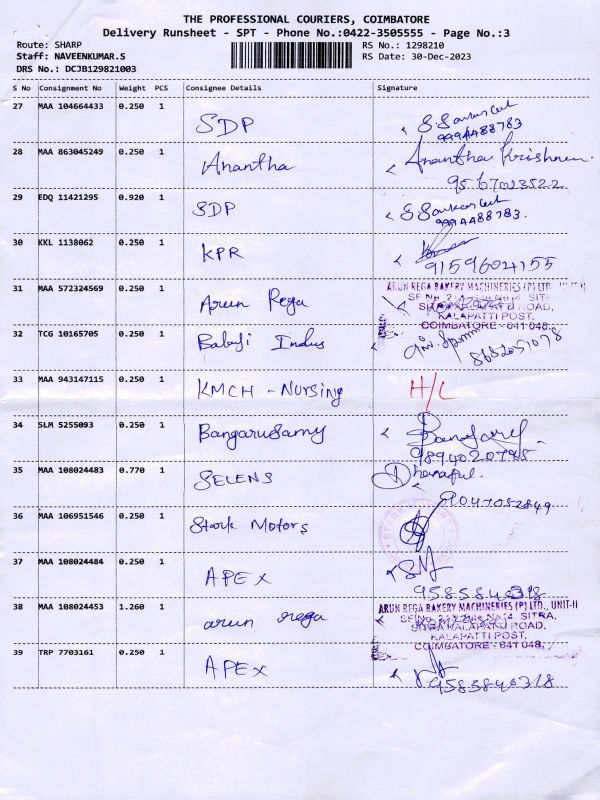 THE PROFESSIONAL COURIERS, COIMBATORE
Delivery Runsheet - SPT - Phone No.:0422-3505555 - Page No.:3
Route: SHARP
Staff: NAVEENKUMAR.S
DRS No.: DCJB129821003
RS No.: 1298210
RS Date: 30-Dec-2023
S No Consignment No Weight PCS Consignee Details Signature
27 MAA 104664433 0.250 1
SDP
9994488783
28 MAA 863045249 0.250 1
Anantha Anantha Krishnan
9567023522
29 EDQ 11421295 0.920 1
SDP
9994488783.
30 KKL 1138062 0.250 1
KPR
9159604155
31 MAA 572324569 0.250 1
Arun Rega
ARUN REGA BAKERY MACHINERIES (P) LTD., UNIT-II
KALAPATTI POST,
COIMBATORE - 641 048.
32 TCG 10165705 0.250 1
Balaji Indus
33 MAA 943147115 0.250 1
KMCH - Nursing H/C
34 SLM 5255093 0.250 1
Bangarusamy
9894020795
35 MAA 108024483 0.770 1
SELENS
9047052849
36 MAA 106951546 0.250 1
Stark Motors
37 MAA 108024484 0.250 1
APEX
9585840318
38 MAA 108024453 1.260 1
arun rega
ARUN REGA BAKERY MACHINERIES (P) LTD., UNIT-II
KALAPATTI POST,
COIMBATORE - 641 048.
39 TRP 7703161 0.250 1
APEX
9585840318